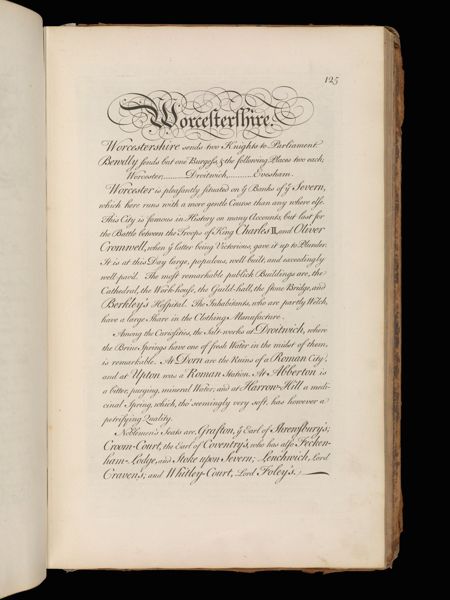 125
Worcestershire.
Worcestershire sends two Knights to Parliament.
Bewdly sends but one Burgess, & the following Places two each;
Worcester,.........Droitwich,.........Evesham.
Worcester is pleasantly situated on ỹ Banks of ỹ Severn,
which here runs with a more gentle Course than any where else.
This City is famous in History on many Accounts, but last for
the Battle between the Troops of King Charles II, and Oliver
Cromwell, when ỹ latter being Victorious, gave it up to Plunder.
It is at this Day large, populous, well built, and exceedingly
well pav'd. The most remarkable publick Buildings are, the
Cathedral, the Work-house, the Guild-hall, the stone Bridge, and
Berkley's Hospital. The Inhabitants, who are partly Welch,
have a large Share in the Clothing Manufacture.
Among the Curiosities, the Salt-works at Droitwich, where
the Brine Springs have one of fresh Water in the midst of them,
is remarkable. At Dorn are the Ruins of a Roman City;
and at Upton was a Roman Station. At Abberton is
a bitter, purging, mineral Water; and at Harrow-Hill a medi-
cinal Spring, which, tho' seemingly very soft, has however a
petrifying Quality.
Noblemen's Seats are, Grafton, ỹ Earl of Shrewsbury's;
Croom-Court, the Earl of Coventry's, who has also Fecken-
ham-Lodge, and Stoke upon Severn; Lenchwich, Lord
Craven's; and Whitley-Court, Lord Foley's.